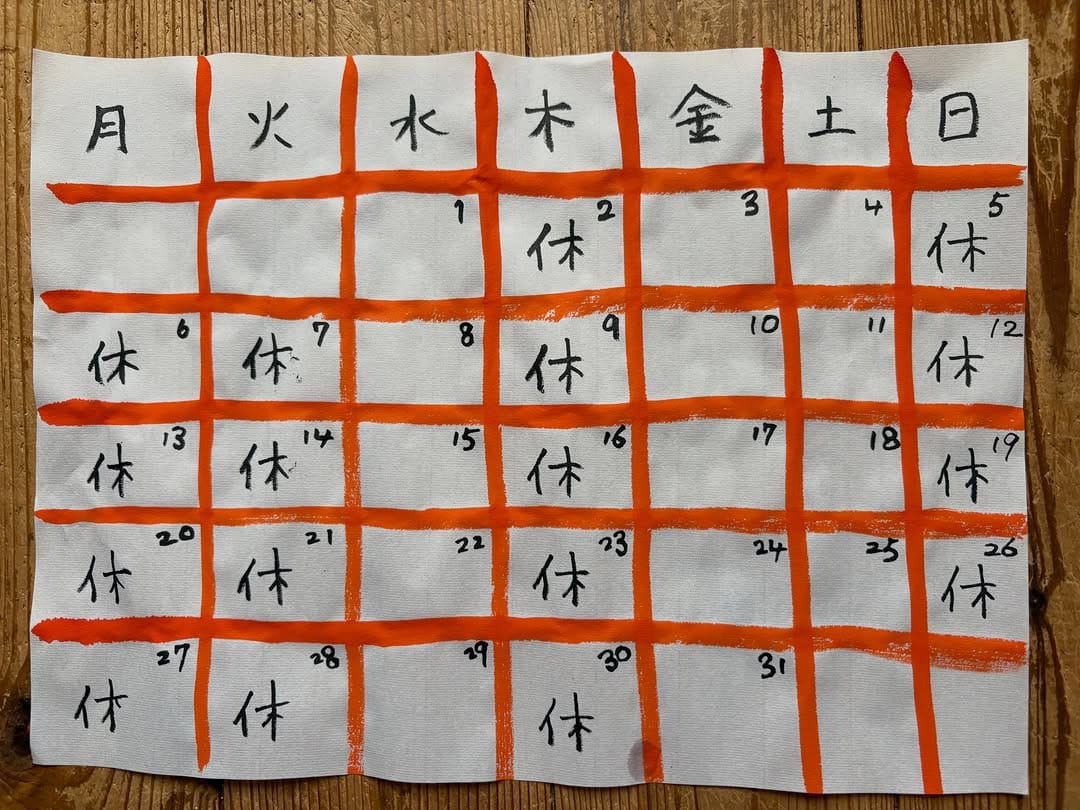 月 火 水 木 金 土 日
1 2 3 4 5
休 休
6 7 8 9 10 11 12
休 休 休 休
13 14 15 16 17 18 19
休 休 休 休
20 21 22 23 24 25 26
休 休 休 休
27 28 29 30 31
休 休 休